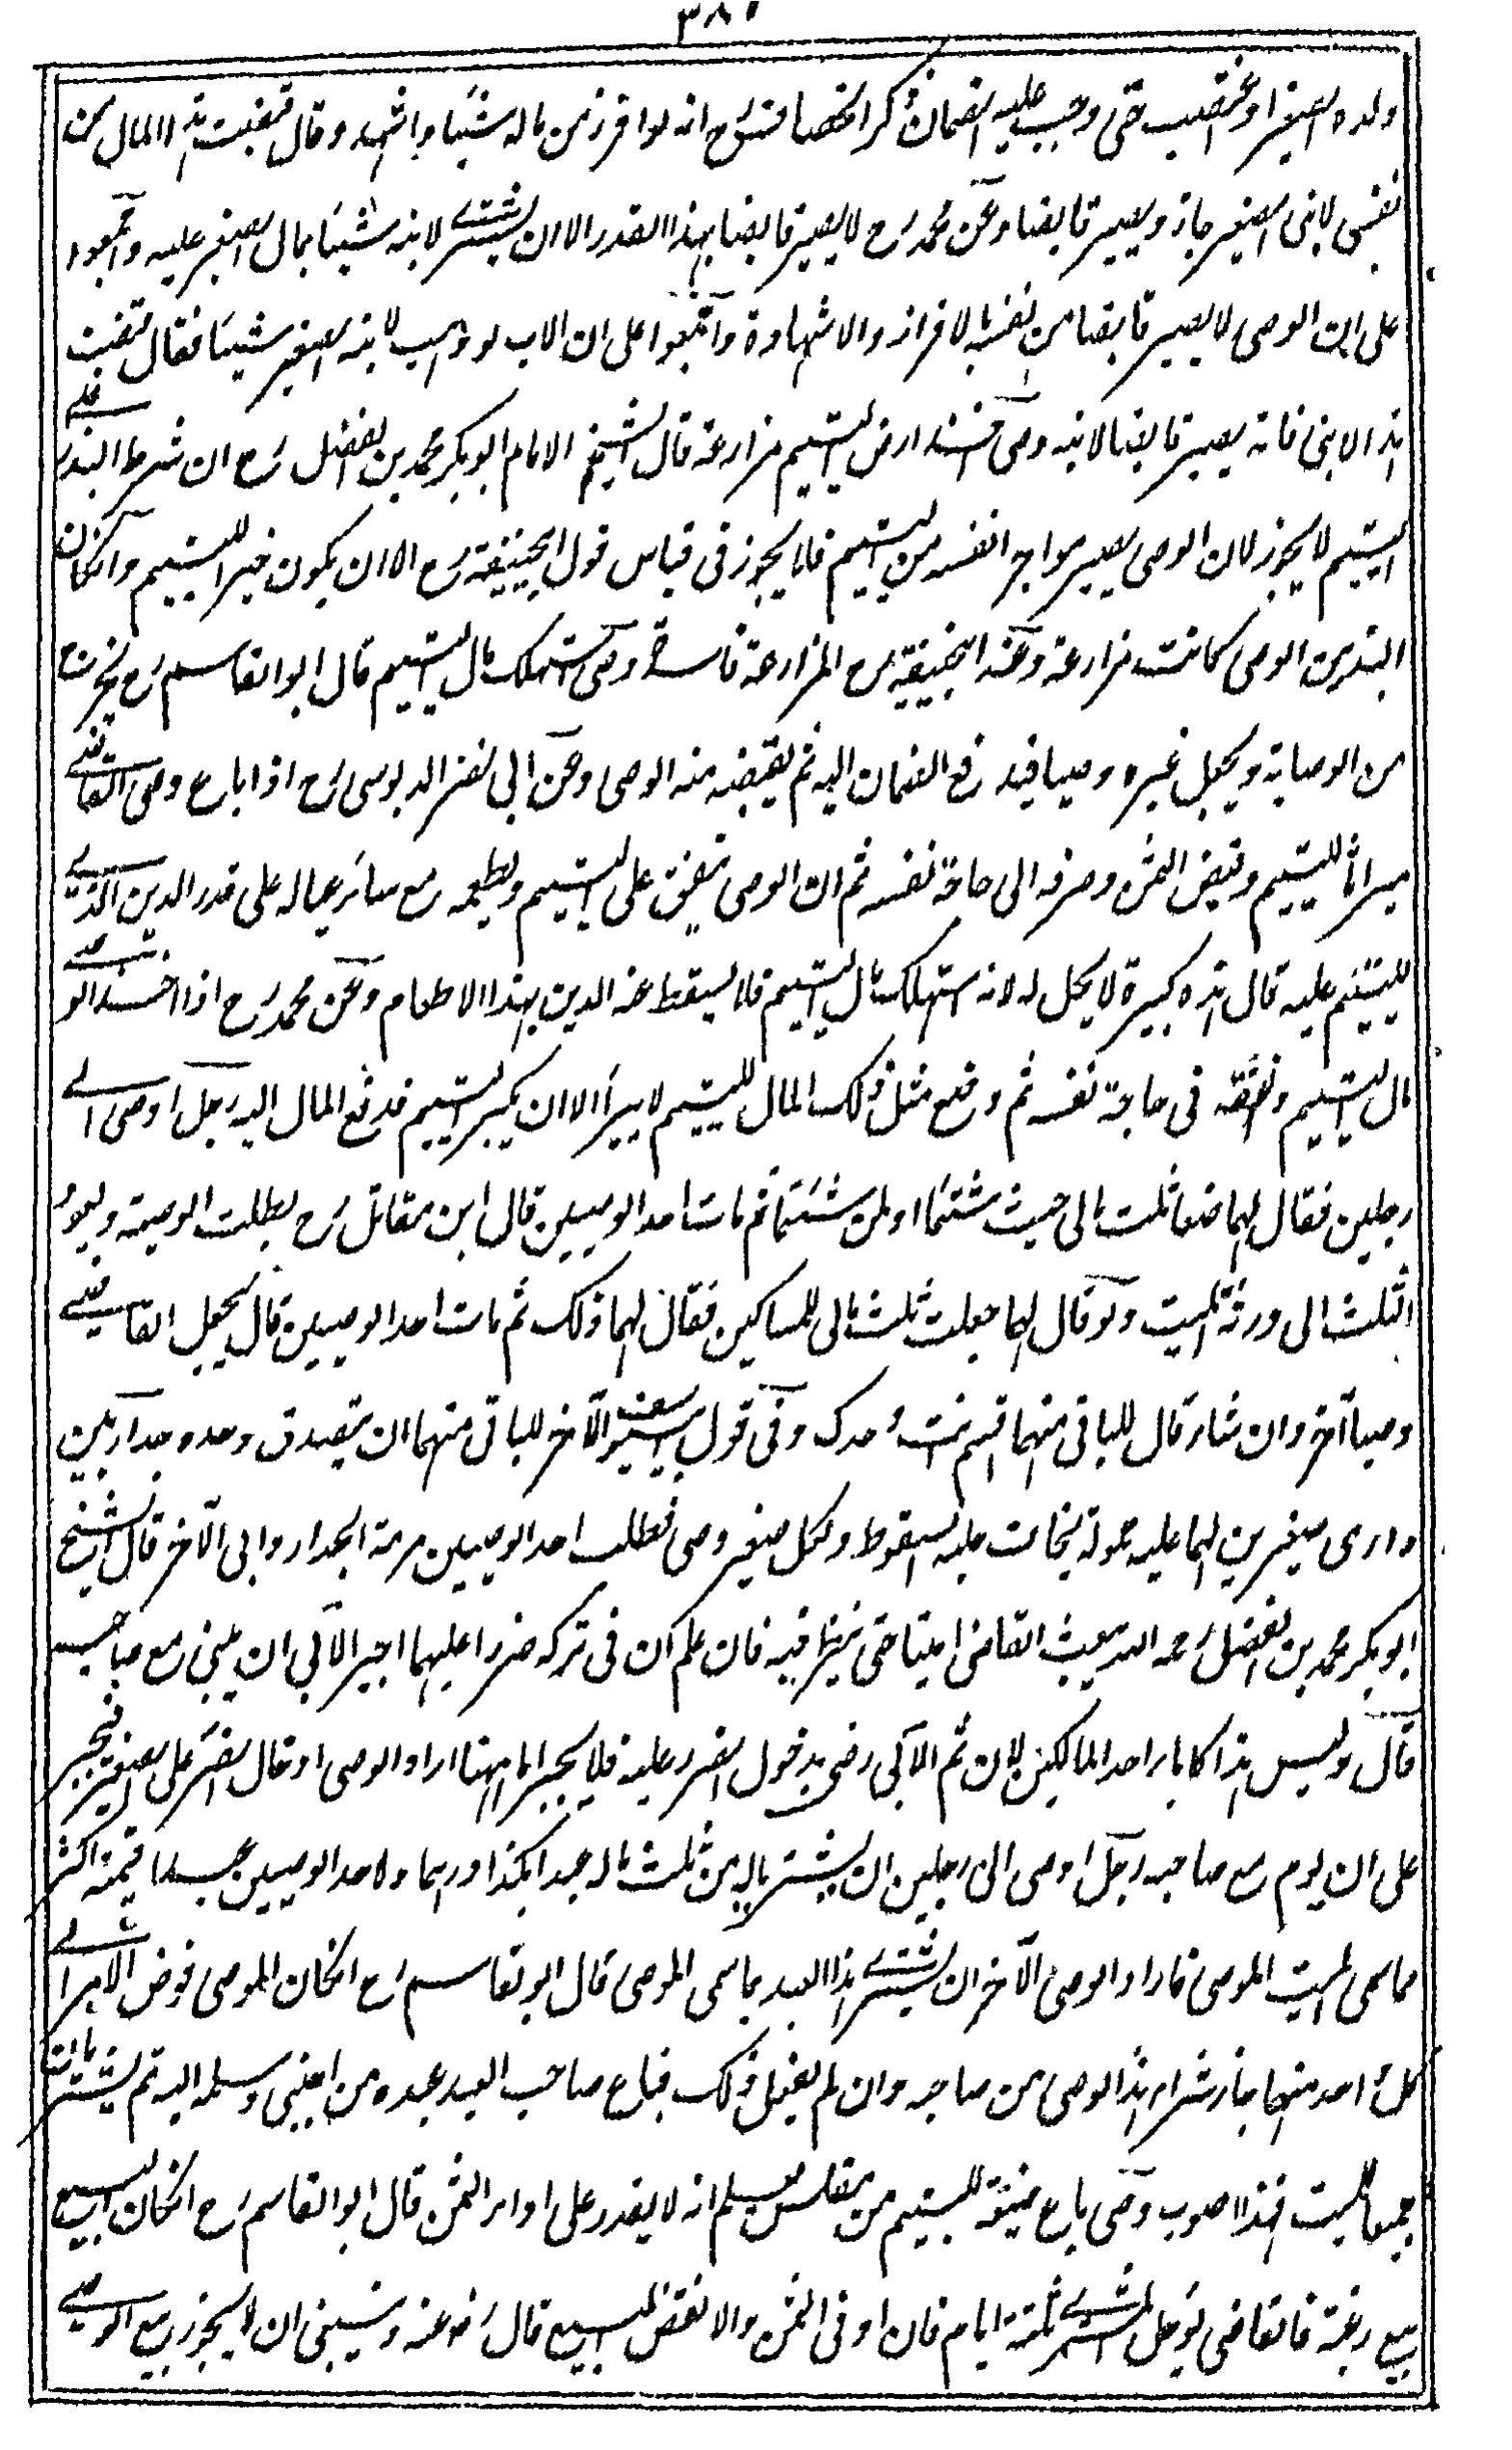 ٣٨١
ولده الصغير او غصب حتى وجب عليه الضمان ذكر الخصاف رح انه لو افرز من ماله شيئا واشهد وقال قبضت هذا المال من
نفسى لابنى الصغير جاز ويصير قابضا وعن محمد رح لا يصير قابضا بهذا القدر الا ان يشترى لابنه شيئا بمال الصغير عليه واجمعوا
على ان الوصى لا يصير قابضا من نفسه بالافراز والاشهاد واجمعوا على ان الاب لو وهب لابنه الصغير شيئا فقال قبضت
هذا لابنى فانه يصير قابضا لابنه وصى اخذ ارض اليتيم مزارعة قال الشيخ الامام ابو بكر محمد بن الفضل رح ان شرط البذر على
اليتيم لا يجوز لان الوصى يصير مواجرا نفسه من اليتيم فلا يجوز فى قياس قول ابيحنيفة رح الا ان يكون خيرا لليتيم وانكان
البذر من الوصى كانت مزارعة وعند ابيحنيفة رح المزارعة فاسدة وصى استهلك مال اليتيم قال ابو القاسم رح يخرج
من الوصاية ويجعل غيره وصيا فيدفع الضمان اليه ثم يقبضه منه الوصى وعن ابى نصر الدبوسى رح اذا باع وصى القاضى
ميراثا لليتيم وقبض الثمن وصرفه الى حاجة نفسه ثم ان الوصى ينفق على اليتيم ويطعمه مع سائر عياله على قدر الدين الذى
لليتيم عليه قال هذه كبيرة لا يحل له لانه استهلك مال اليتيم فلا يسقط عنه الدين بهذا الاطعام وعن محمد رح اذا اخذ الوصى
مال اليتيم وانفقه فى حاجة نفسه ثم وضع مثل ذلك المال لليتيم لا يبرأ الا ان يكبر اليتيم فدفع المال اليه رجل اوصى الى
رجلين فقال لهما ضعا ثلث مالى حيث شئتما او لمن شئتما ثم مات احد الوصيين قال ابن مقاتل رح بطلت الوصية ويعود
الثلث الى ورثة الميت ولو قال لهما جعلت ثلث مالى للمساكين فقال لهما ذلك ثم مات احد الوصيين قال يجعل القاضى
وصيا آخر وان شاء قال للباقى منهما اقسم انت وحدك وفى قول ابى يوسف الآخر للباقى منهما ان يتصدق وحده جدار بين
دارى صغيرين لهما عليه حمولة يخاف عليه السقوط ولكل صغير وصى فطلب احد الوصيين مرمة الجدار وابى الآخر قال الشيخ
ابو بكر محمد بن الفضل رحمه الله يبعث القاضى امينا حتى ينظر فيه فان علم ان فى تركه ضررا عليهما اجبر الآبى ان يبنى مع صاحبه
قال وليس هذا كاباء احد المالكين لان ثم الآبى رضى بدخول الضرر عليه فلا يجبر اما ههنا اراد الوصى ادخال الضرر على الصغير فيجبر
على ان يرم مع صاحبه رجل اوصى الى رجلين ان يشتريا له من ثلث ماله عبدا بكذا درهما ولاحد الوصيين عبد قيمته اكثر
مما سمى الميت الموصى فاراد الوصى الآخر ان يشترى هذا العبد بما سمى الموصى قال ابو القاسم رح انكان الموصى فوض الامر الى
كل واحد منهما جاز شراء هذا الوصى من صاحبه وان لم يفعل ذلك فباع صاحب العبد عبده من اجنبى وسلمه اليه ثم يشتريانه
جميعا للميت فهذا اصوب وصى باع ضيعة لليتيم من مفلس يعلم انه لا يقدر على اداء الثمن قال ابو القاسم رح انكان البيع
بيع رغبة فالقاضى يؤجل المشترى ثلثة ايام فان اوفى الثمن والا نقض البيع قال رضى عنه وينبغى ان لا يجوز بيع الوصى